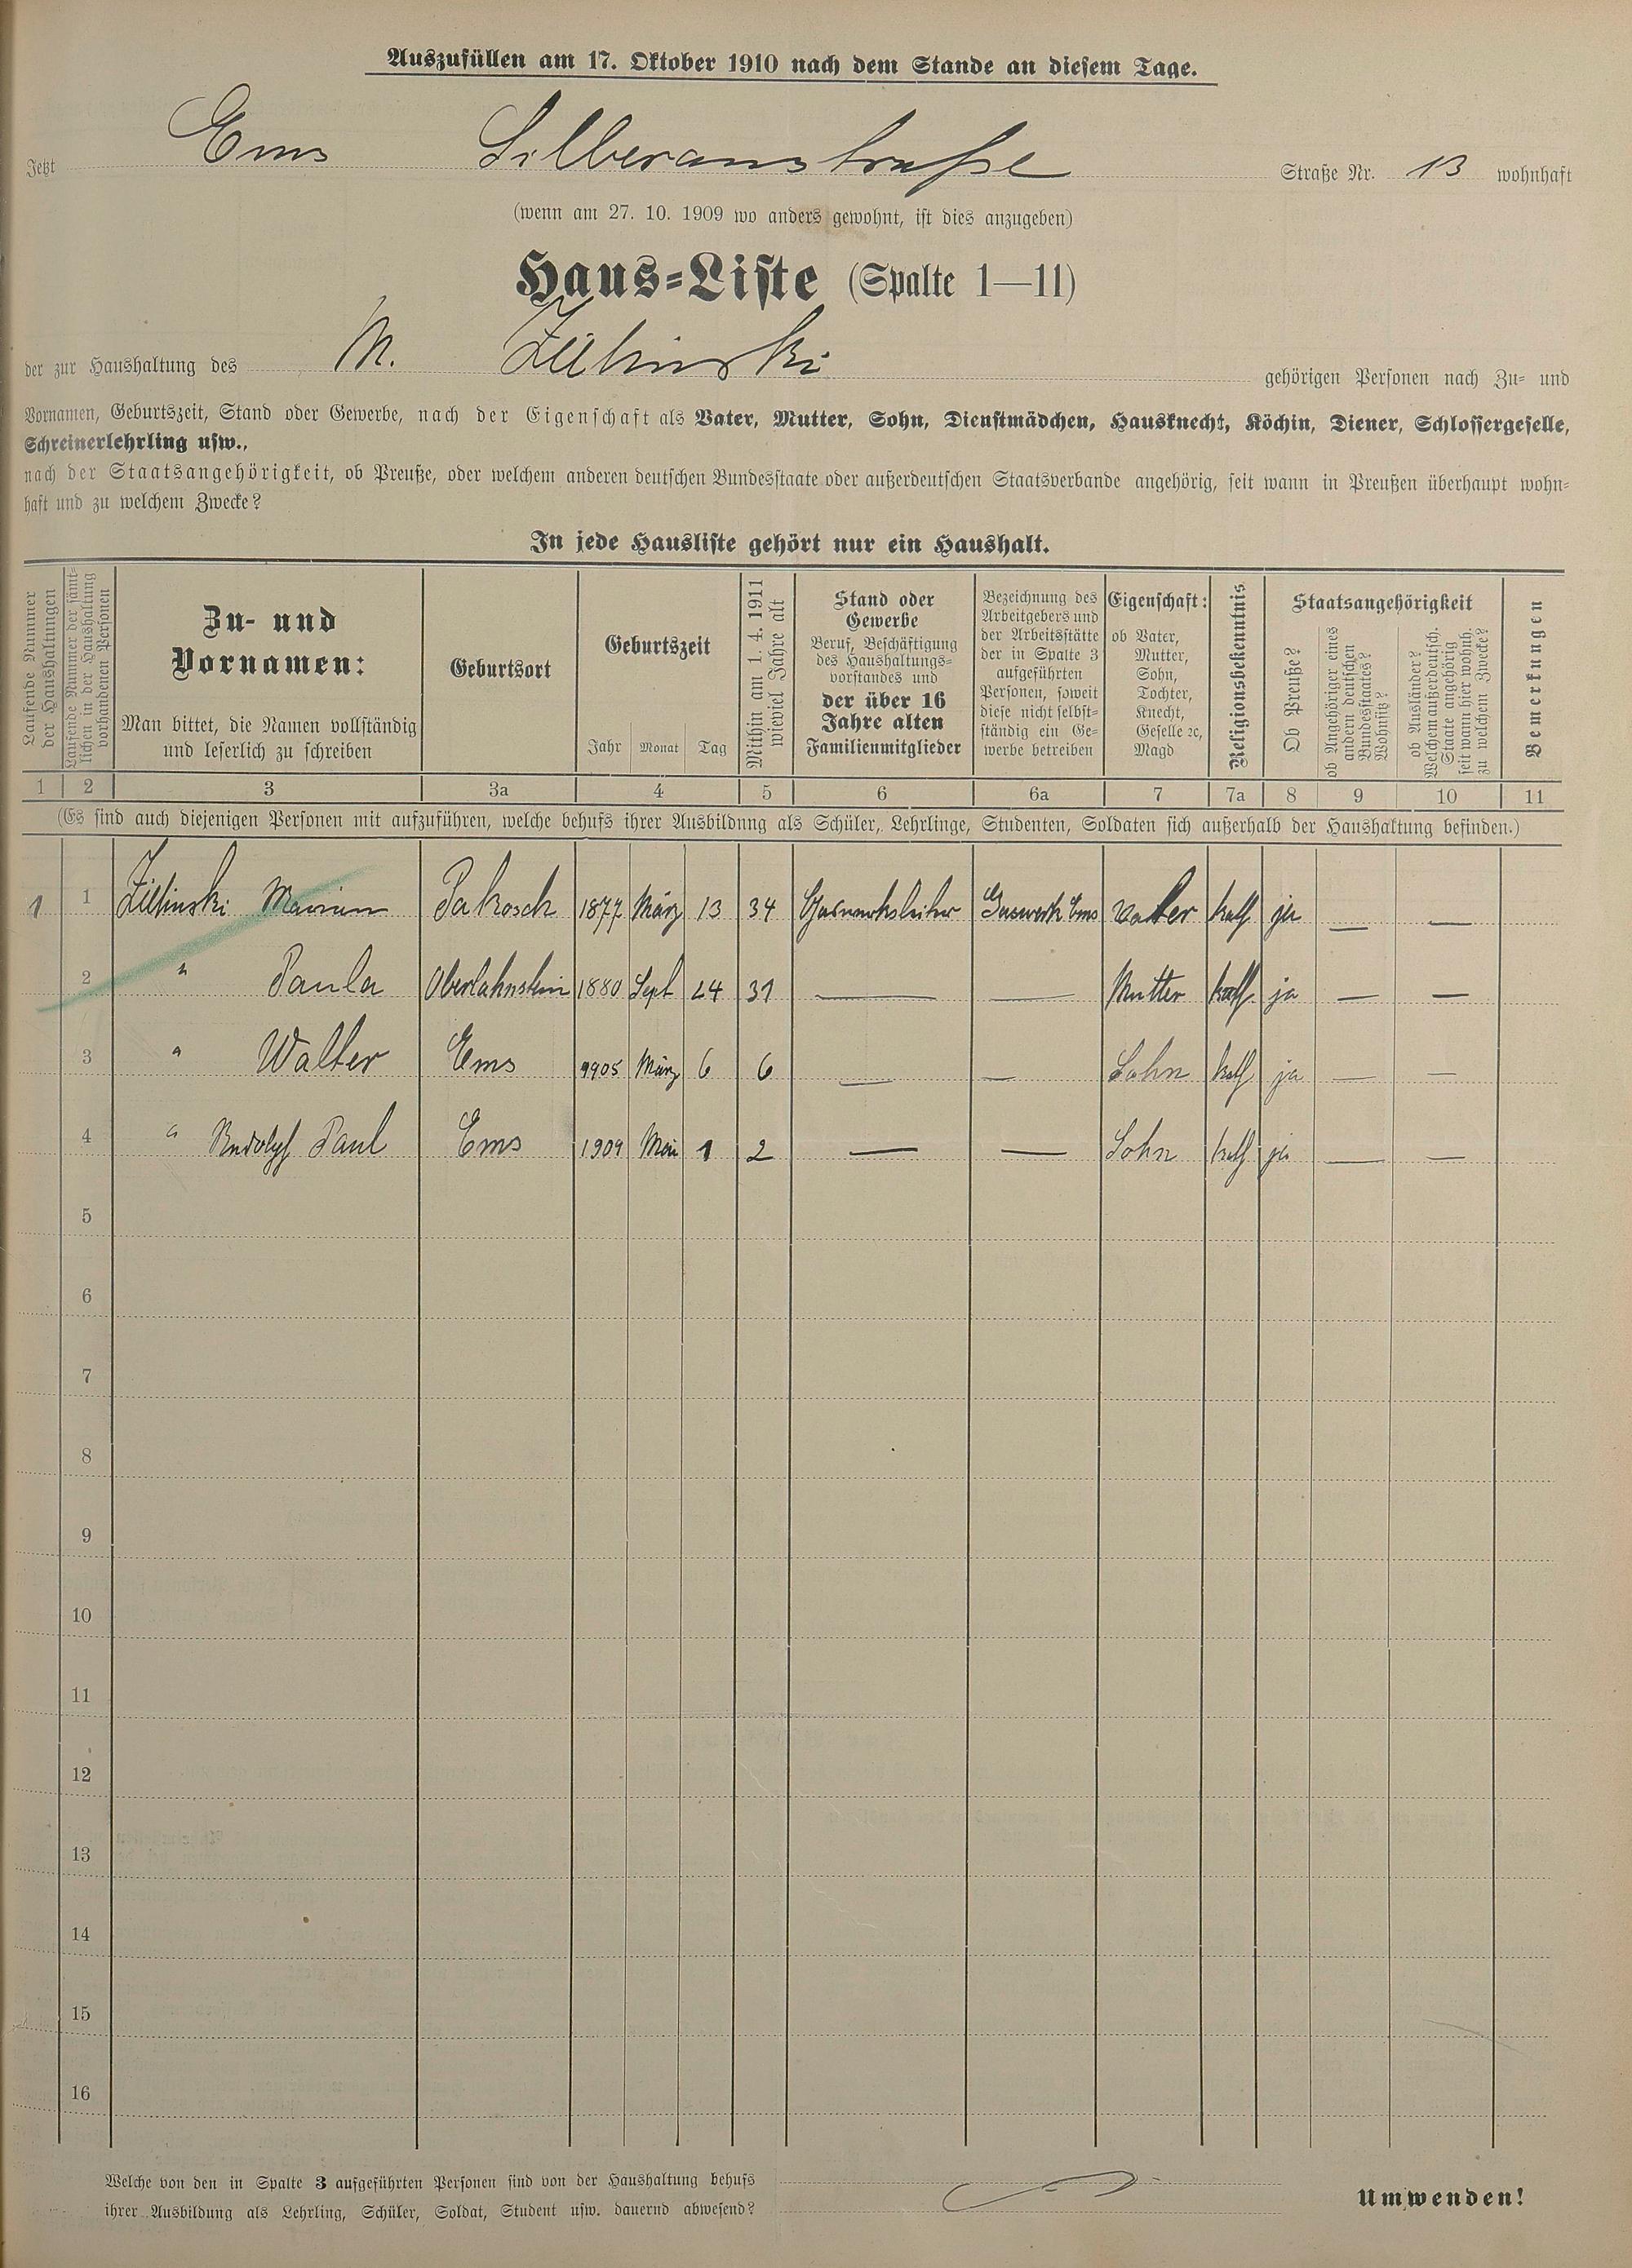 Auszufüllen am 17. Oktober 1910 nach dem Stande an diesem Tage.
Jetzt Ems Silberaustraße Straße Nr. 13 wohnhaft
(wenn am 27. 10. 1909 wo anders gewohnt, ist dies anzugeben)
Haus-Liste (Spalte 1—11)
der zur Haushaltung des M. Zielinski gehörigen Personen nach Zu- und
Vornamen, Geburtszeit, Stand oder Gewerbe, nach der Eigenschaft als Vater, Mutter, Sohn, Dienstmädchen, Hausknecht, Köchin, Diener, Schlossergeselle,
Schreinerlehrling usw.,
nach der Staatsangehörigkeit, ob Preuße, oder welchem anderen deutschen Bundesstaate oder außerdeutschen Staatsverbande angehörig, seit wann in Preußen überhaupt wohn-
haft und zu welchem Zwecke?
In jede Hausliste gehört nur ein Haushalt.
Laufende Nummer
der Haushaltungen
Laufende Nummer der sämt-
lichen in der Haushaltung
vorhandenen Personen
Zu- und
Vornamen:
Man bittet, die Namen vollständig
und leserlich zu schreiben
Geburtsort
Geburtszeit
Jahr Monat Tag
Mithin am 1. 4. 1911
wieviel Jahre alt
Stand oder
Gewerbe
Beruf, Beschäftigung
des Haushaltungs-
vorstandes und
der über 16
Jahre alten
Familienmitglieder
Bezeichnung des
Arbeitgebers und
der Arbeitsstätte
der in Spalte 3
aufgeführten
Personen, soweit
diese nicht selbst-
ständig ein Ge-
werbe betreiben
Eigenschaft:
ob Vater,
Mutter,
Sohn,
Tochter,
Knecht,
Geselle ꝛc,
Magd
Religionsbekenntnis
Staatsangehörigkeit
Ob Preuße?
ob Angehöriger eines
andern deutschen
Bundesstaates?
Wohnsitz?
ob Ausländer?
Welchem außerdeutsch.
Staate angehörig
seit wann hier wohnh.
zu welchem Zwecke?
Bemerkungen
1 2 3 3a 4 5 6 6a 7 7a 8 9 10 11
(Es sind auch diejenigen Personen mit aufzuführen, welche behufs ihrer Ausbildung als Schüler, Lehrlinge, Studenten, Soldaten sich außerhalb der Haushaltung befinden.)
1 1 Zielinski Marian Pakosch 1877 März 13 34 Gaswerksleiter Gaswerk Ems Vater kath ja — —
2 " Paula Oberlahnstein 1880 Sept 24 31 — — Mutter kath. ja — —
3 " Walter Ems 1905 März 6 6 — — Sohn kath ja — —
4 " Rudolf Paul Ems 1909 Mai 1 2 — — Sohn kath ja — —
5
6
7
8
9
10
11
12
13
14
15
16
Welche von den in Spalte 3 aufgeführten Personen sind von der Haushaltung behufs
ihrer Ausbildung als Lehrling, Schüler, Soldat, Student usw. dauernd abwesend?
Umwenden!